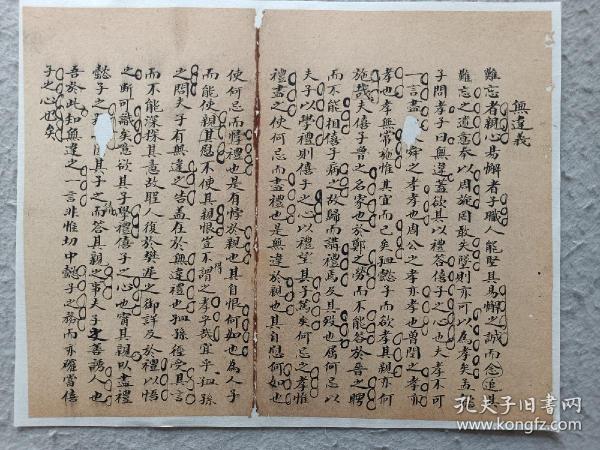 無違義
難忘者親心易懈者子職人能堅其易懈之誠而念追其
難忘之遺意奉以周旋罔敢失墜則亦可以為孝矣孟懿
子問孝子曰無違蓋欲其以禮答僖子之心也夫孝不可
一言盡 舜之孝孝也周公之孝亦孝也曾閔之孝亦
孝也孝無常施惟其宜而已矣矧懿子而欲孝其親亦何
施哉夫僖子魯之名家也於鄭之勞而不能答於晉之聘
而不能相僖子病之故歸而講禮焉及其歿也屬何忌以
夫子以學禮則僖子之心以禮望其子篤矣何忌之孝惟
禮盡之使何忌而盡禮也是無違於親也其自慰何如也
使何忌而悖禮也是有悖於親也其自恨何如也為人子
而能使親其慰不使其親恨豈不謂之孝哉宜乎孟孫
之問夫子有無違之告蓋在於無違禮也孟孫徒受其言
而不能深探其意故聖人復於樊遲之御詳及於禮以悟
之斯可識矣意欲其子學禮僖子之心也胥其親以盡禮
懿子之 其子而答其親之事夫子之善誘人也
吾於此知無違之一言非惟切中懿子之務而亦確當僖
子之心也矣
孔夫子旧书网
www.kongfz.com